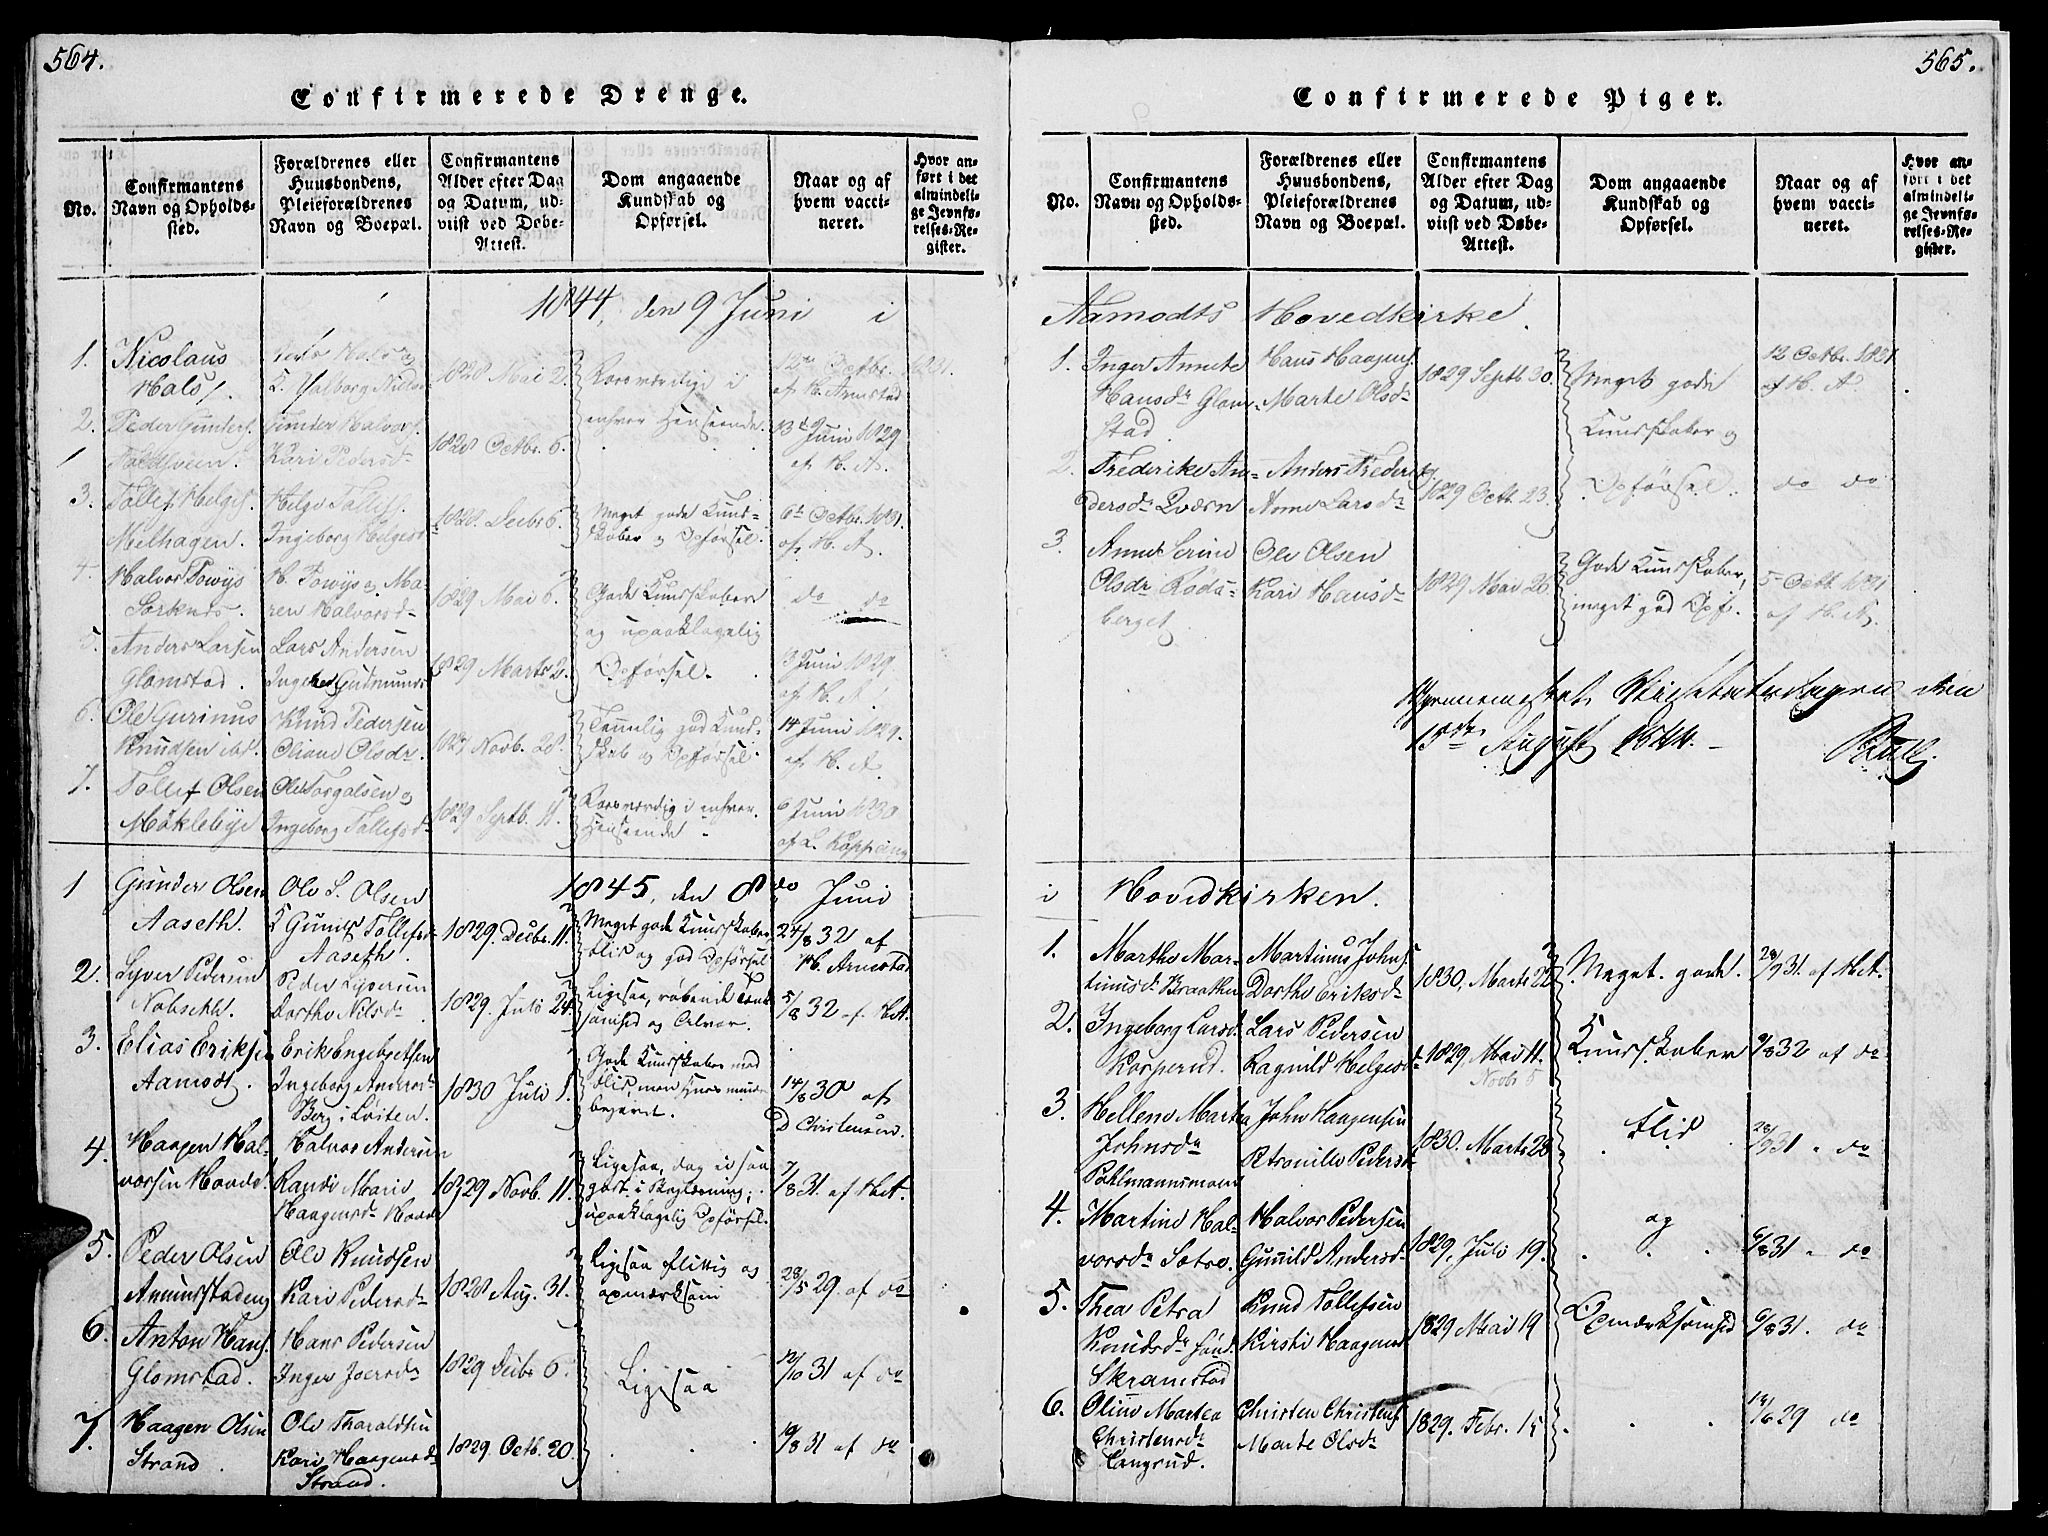 564.
Confirmerede Drenge.
No.
Confirmantens Navn og Opholds-sted.
Forældrenes eller Huusbondens, Pleieforældrenes Navn og Boepæl.
Confirmantens Alder efter Dag og Datum, ud-viist ved Døbe-Attest.
Dom angaaende Kundskab og Opførsel.
Naar og af hvem vacci-neret.
Hvor an-ført i det almindeli-ge Jevnfø-relses-Re-gister.
1844, den 9 Juni i
1. Nicolaus Hals
1828 Mai 2.
Roesværdige i enhver Henseende.
12te Octbr. 1831. af H. Arnestad
2. Peder Gunders.
Gunder Halvors. Kari Pedersdr
1828 Octbr. 6.
13de Juni 1829 af H. A.
3. Tollef Helges. Melhagen.
Helge Tollefs. Ingeborg Helgesdr
1828 Decbr 6.
Meget gode Kund-skaber og Opførsel.
6te Octbr. 1831. af H. A.
4. Halvor Towys Sorknes.
H. Towys og Ma-ren Halvorsdr
1829 Mai 6.
Gode Kundskaber og upaaklagelig Opførsel.
do do
5. Anders Larsen Glomstad.
Lars Andersen
1829 Marts 2.
3 Juni 1829 af H. A.
6. Ole Gurinus Knudsen ibd.
Knud Pedersen Oleane Olsdr.
Novb. 28.
Temmelig god Kund-skab og Opførsel.
14 Juni 1829. af H. A.
7. Tollef Olsen Møklebye
Ole Torgalsen og Ingeborg Tollefsdr
1829 Septb. 11.
Roesværdig i enhver Henseende.
6 Juni 1830 af L. Kopping
1845, den 8do Juni
1 Gunder Olsen Aaseth.
Ole S. Olsen & Gunild Tollefsdr Aaseth.
1829. Decbr. 11.
Meget gode Kundskaber, Flid og god Opførsel
24/8 32 af H. Arnestad
2. Syver Pedersen Nobseth.
Peder Syversen Dorthe Nilsdr.
1829. Juli 24.
Ligesaa, røbende Tænk-somhed og Alvor.
5/8 32 af H.A.
3. Elias Eriksen Aamodt.
Erik Engebretsen Ingeborg Andersdr Berg i Løiten.
1830 Juli 1.
Gode Kundskaber med Flid, men
14/8 30 af D Christensen.
4. Haagen Hal-vorsen Hovde.
Halvor Andersen Randi Marie Haagensdr Hovde
1829 Novb. 11.
Ligesaa, dog ei saa godt i upaaklagelig Opførsel.
7/8 31. af H.A.
5. Peder Olsen
Ole Knudsen Kari Pedersdr
1828 Aug. 31.
Ligesaa flittig og opmærksom
28/5 29. af do
6. Anton Hans. Glomstad.
Hans Pedersen Inger Joersdr
1829 Decbr 6.
Ligesaa
12/10 31 af do
7. Haagen Olsen Strand.
Ole Tharaldsen Kari Haagensdr Strand.
1829 Octb. 20.
10/8 31 af do
565.
Confirmerede Piger.
No.
Confirmantens Navn og Opholds-sted.
Forældrenes eller Huusbondens, Pleieforældrenes Navn og Boepæl.
Confirmantens Alder efter Dag og Datum, ud-viist ved Døbe-Attest.
Dom angaaende Kundskab og Opførsel.
Naar og af hvem vacci-neret.
Hvor an-ført i det almindeli-ge Jevnfø-relses-Re-gister.
Aamodts Hovedkirke.
1. Inger Annete Hansdr Glom-stad.
Hans Haagens. Marte Olsdr
1829 Septb 30.
Meget gode Kundskaber og Opførsel.
12 Octbr. 1831. af H. A.
2. Frederike An-dersdr Qværn
Anders Freder. Anne Larsdr
1829 Octb. 23.
do do
3. Anne Serine Olsdr Røds-berget
Ole Olsen Kari Hansdr
1829 Mai 26.
Gode Kundskaber, meget god Opf.
5 Octb 1831 af H. A.
Gjennemseet Visitatsdagen den 15de August 1844.
i Hovedkirken.
1. Marthe Mar-tinusdr Braathen
Martinus Johns. Dorthe Eriksdr
1830. Marts 22
Meget gode.
28/9 31. af H.A.
2. Ingeborg Larsd. Kopperud.
Lars Pedersen Ragnild Helgesdr
1829. Mai 11. Novbr 6
Kundskaber
9/8 32 af do
3. Hellene Martea Johnsdr Pohlmannsmoen
John Haagensen Petronille Pedersdr
1830. Marts 28
Flid
28/9 31 " do
4. Martine Hal-vorsdr Sætre.
Halvor Pedersen Gunild Andersdr
1829. Juli 19.
og
6/8 31 " do
5. Thea Petra Knudsdr Sønd. Skramstad
Knud Tollefsen Kirsti Haagensdr
1829 Mai 19
Opmærksomhed
6/8 31. do
6. Oline Martea Christensdr Langrud.
Christen Christens. Marte Olsdr
1829. Febr. 15.
14/6 29 do